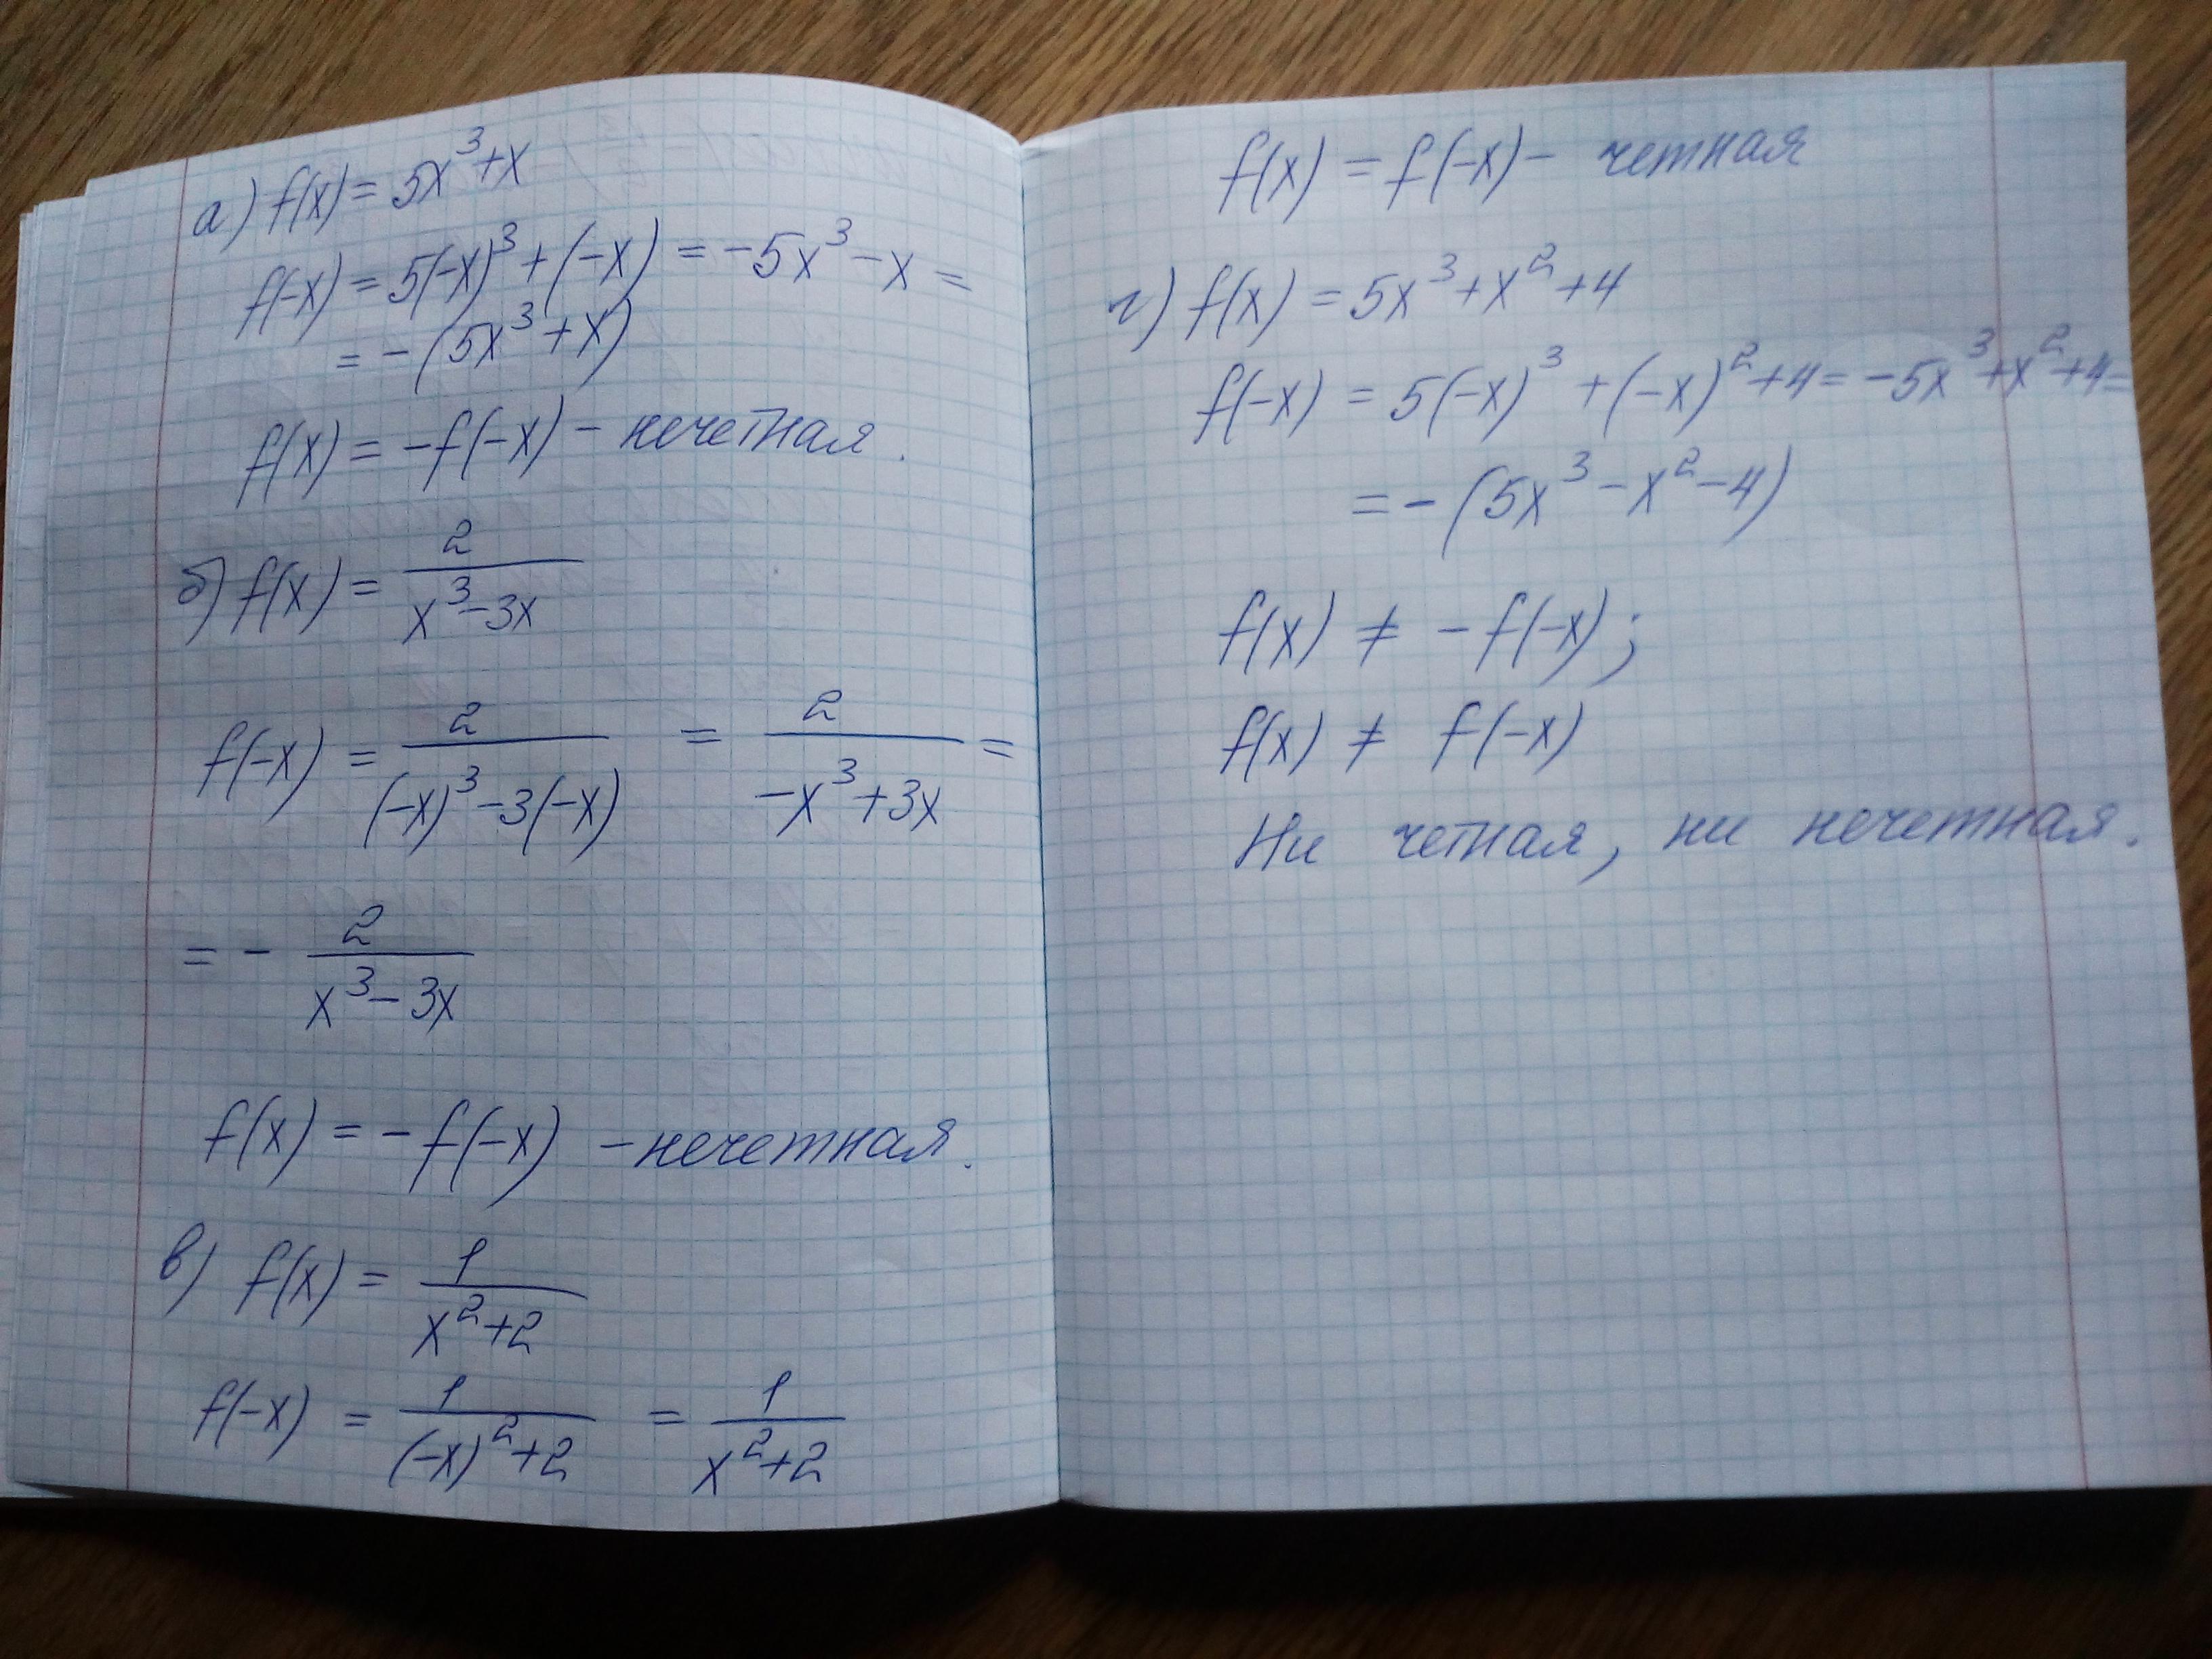 а) f(x) = 5x³+x
f(-x) = 5(-x)³+(-x) = -5x³-x =
= -(5x³+x)
f(x) = -f(-x) - нечетная.
б) f(x) = 2/(x³-3x)
f(-x) = 2/((-x)³-3(-x)) = 2/(-x³+3x) =
= - 2/(x³-3x)
f(x) = -f(-x) - нечетная.
в) f(x) = 1/(x²+2)
f(-x) = 1/((-x)²+2) = 1/(x²+2)
f(x) = f(-x) - четная
г) f(x) = 5x³+x²+4
f(-x) = 5(-x)³ +(-x)²+4 = -5x³+x²+4=
= -(5x³-x²-4)
f(x) ≠ -f(-x);
f(x) ≠ f(-x)
Ни четная, ни нечетная.